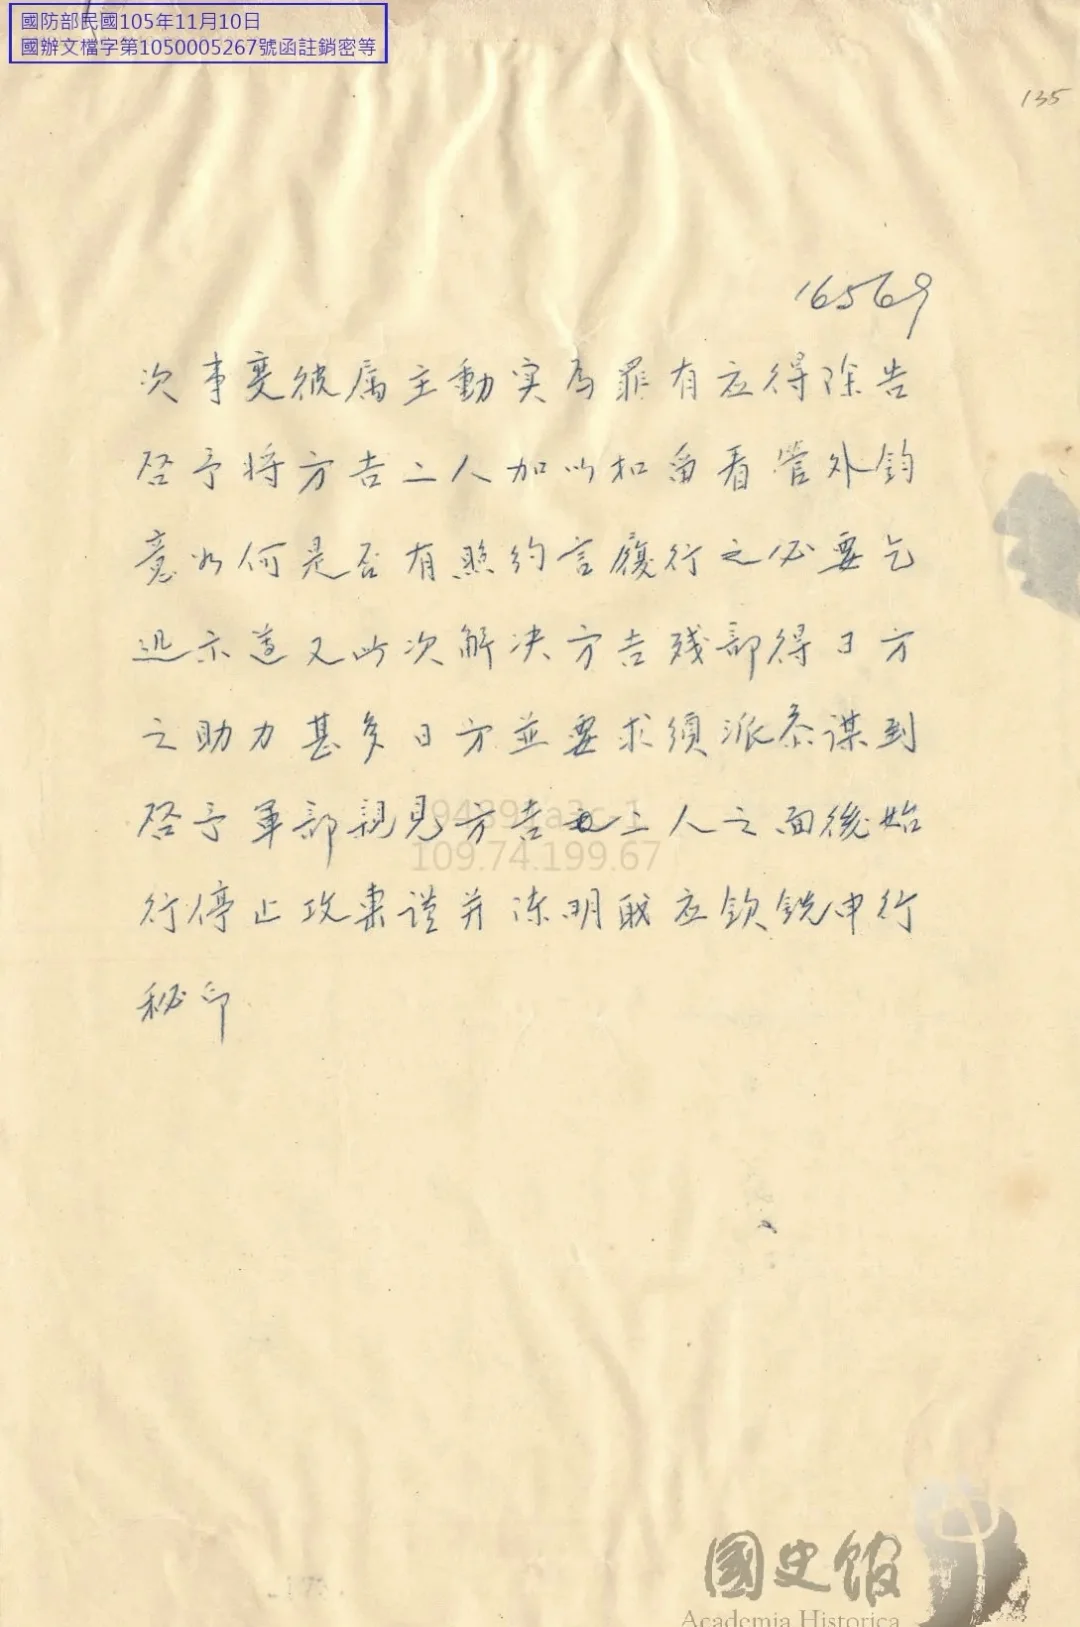 國防部民國105年11月10日
國辦文檔字第1050005267號函註銷密等
135
16569
次事变彼属主動实为罪有应得除告
啓予将方吉二人加以扣留看管外鈞
意如何是否有照約言履行之必要乞
迅示遵又此次解决方吉残部得日方
之助力甚多日方並要求須派叅谋到
啓予軍部親見方吉二人之面後始
行停止攻击謹并陈明職应欽銑申行
秘印
94.89
109.74.199.67
國史館
Academia Historica